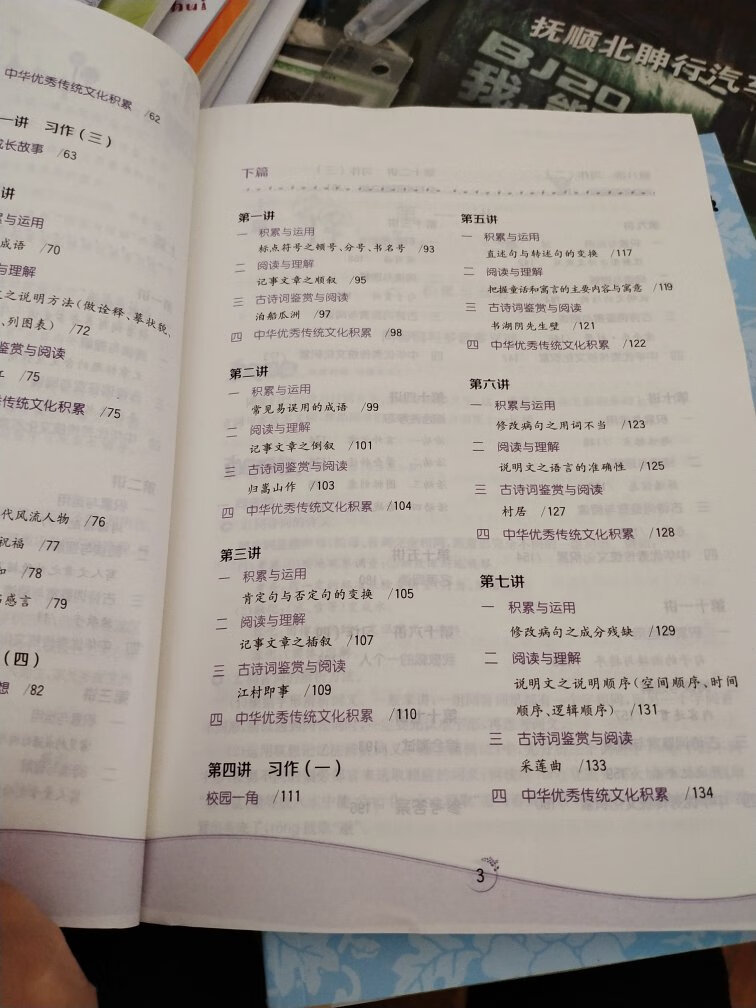 中华优秀传统文化积累 /62
一讲 习作(三)
成长故事 /63
讲
累与运用
成语 /70
与理解
之说明方法(做诠释、摹状貌、
、列图表) /72
鉴赏与阅读
/75
传统文化积累 /75
代风流人物 /76
祝福 /77
/78
感言 /79
(四)
想 /82
抚顺北
行汽车
BJ20
我
下篇
第一讲
一 积累与运用
标点符号之顿号、分号、书名号 /93
二 阅读与理解
记事文章之顺叙 /95
三 古诗词鉴赏与阅读
泊船瓜洲 /97
四 中华优秀传统文化积累 /98
第二讲
一 积累与运用
常见易误用的成语 /99
二 阅读与理解
记事文章之倒叙 /101
三 古诗词鉴赏与阅读
归嵩山作 /103
四 中华优秀传统文化积累 /104
第三讲
一 积累与运用
肯定句与否定句的变换 /105
二 阅读与理解
记事文章之插叙 /107
三 古诗词鉴赏与阅读
江村即事 /109
四 中华优秀传统文化积累 /110
第四讲 习作(一)
校园一角 /111
第五讲
一 积累与运用
直述句与转述句的变换 /117
二 阅读与理解
把握童话和寓言的主要内容与寓意 /119
三 古诗词鉴赏与阅读
书湖阴先生壁 /121
四 中华优秀传统文化积累 /122
第六讲
一 积累与运用
修改病句之用词不当 /123
二 阅读与理解
说明文之语言的准确性 /125
三 古诗词鉴赏与阅读
村居 /127
四 中华优秀传统文化积累 /128
第七讲
一 积累与运用
修改病句之成分残缺 /129
二 阅读与理解
说明文之说明顺序(空间顺序、时间
顺序、逻辑顺序) /131
三 古诗词鉴赏与阅读
采莲曲 /133
四 中华优秀传统文化积累 /134
3